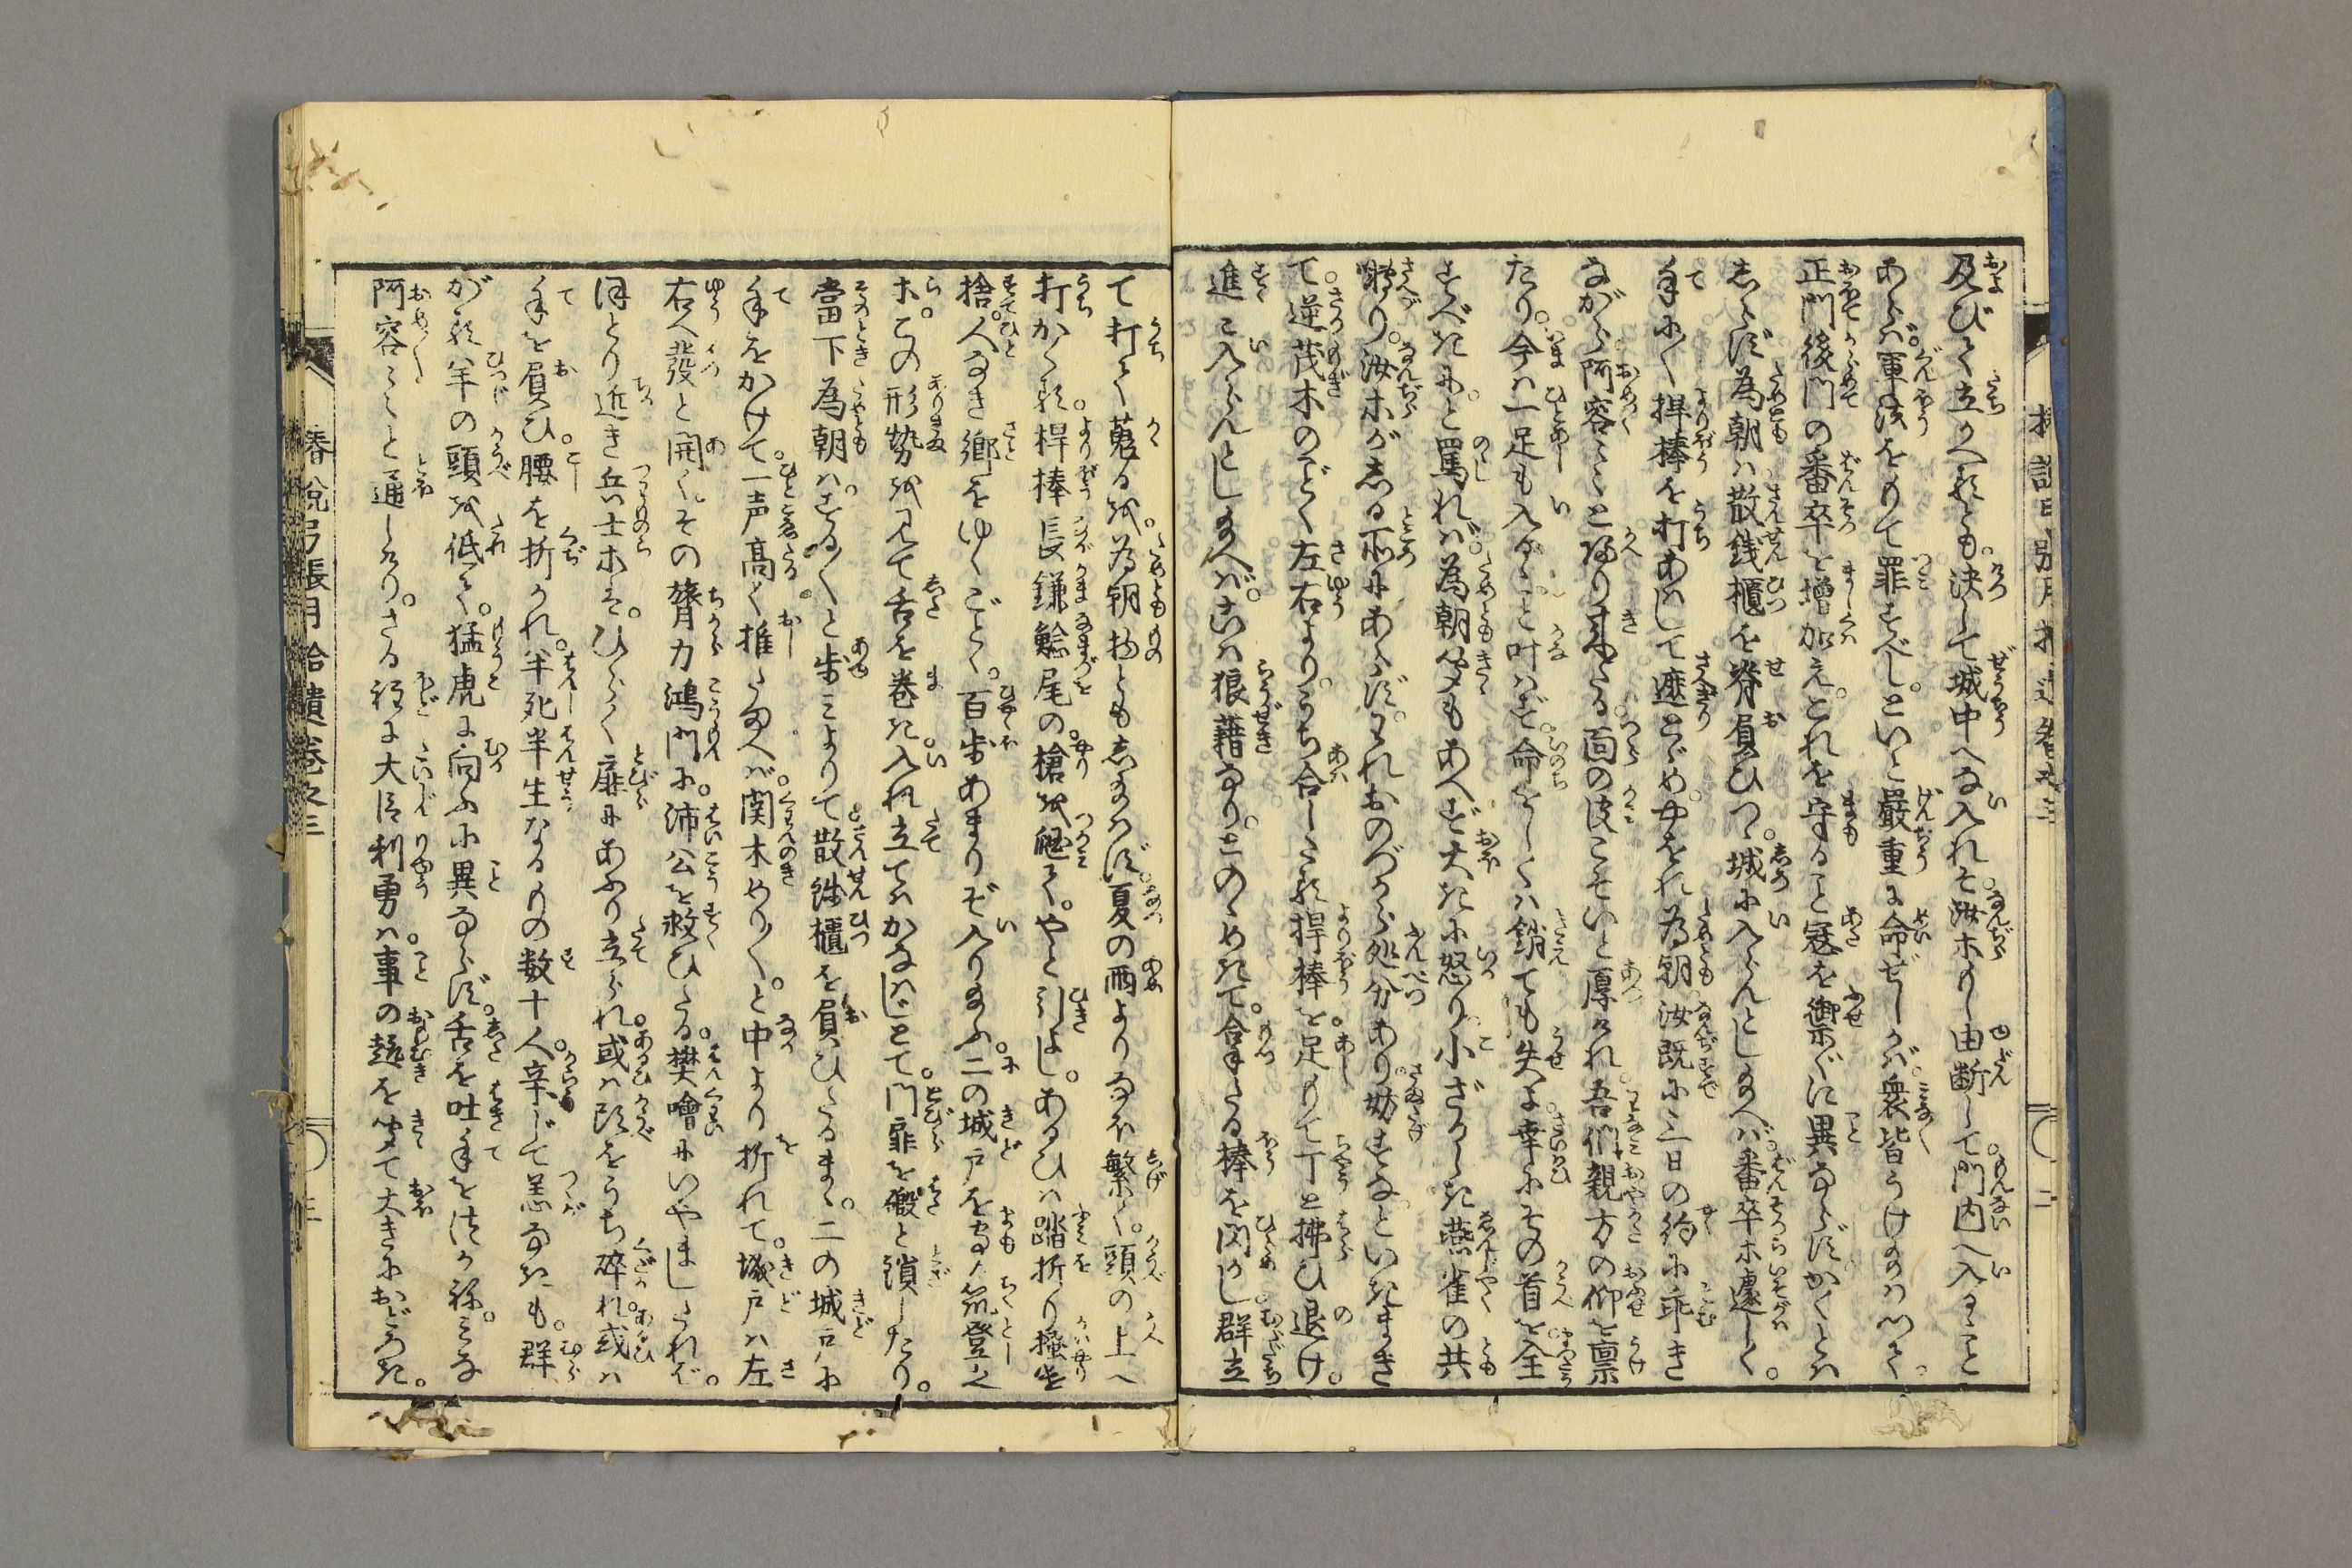 及びて立かへるとも。決して城中へな入れそ。汝ホもし由断して。門内へ入るゝこと
あらば。軍法をもて罪すべし。といと嚴重に命ぜしかば。衆皆うけ給はりて。
正門後門の番卒を増加え。これを守ること寇を禦ぐに異ならず。かくとは
しらず為朝は散銭櫃を脊負ひつゝ。城に入らんとし給へば。番卒ホ遽しく。
手に〳〵捍棒を打あはして遮とゞめ。やをれ為朝。汝既に三日の約に乖き
ながら。阿容〻〻と帰り来たる。面の皮こそいと厚けれ。吾們親方の仰を禀
たり。今は一足も入るゝこと叶はず。命をしくは銷ても失よ。幸にその首を全
すべきに。と罵れば。為朝聞もあへず大きに怒り。小ざかしき燕雀の共
囀り。汝ホがしる所にあらず。われおのづから処分あり。妨すな。といきまき
て。逆茂木のごとく左右より。うち合したる捍棒を。足もて丁と拂ひ退け。
進こ入らんとし給へば。こは狼藉なり。とのゝめきて。合手たる棒を閃かし。群立
て打て蒐るを。為朝物ともし給はず。夏の雨よりなほ繁く。頭の上へ
打かくる。桿棒長鎌鯰尾の。槍を爴て。やと引よし。あるひは踏折り掻遣
捨。人なき郷をゆくごとく。百歩あまりぞ入り給ふ。二の城戸を守る筑登之
ホ。この形勢を見て舌を巻き。入れ立てはかなはじとて。門扉を礑と鎖したり。
當下為朝は。する〳〵と歩みよりて。散銭櫃を負ひたるまゝ。二の城戸に
手をかけて。一声高く推たまへば。関木めり〳〵。と中より折れて。城戸は左
右へ發と開く。その膂力鴻門に。沛公を救ひたる。樊噲にいやましたれば。
ほとり近き兵士ホは。ひらく扉にあふり立られ。或は頭をうち砕れ。或は
手を負ひ。腰を折かれ。半死半生なるもの数十人。辛じて恙なきも。群
がる羊の頭を低て。猛虎に向ふに異ならず。舌を吐手を泳かね。みな
阿容〻〻と通しけり。さる程に大臣利勇は。事の趣を聞て大きにおどろき。
椿説弓張月拾遺巻之三